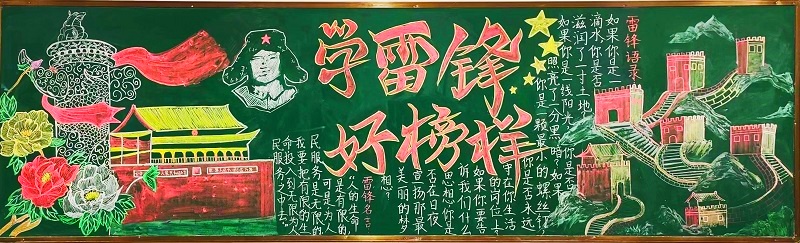 学雷锋
好榜样
雷锋语录
如果你是一
滴水,你是否
滋润了一寸土地
如果你是一线阳光,你是否
照亮了一分黑暗?如果
你是一颗最小的螺丝钉
你是否永远
守在你生活
的岗位上
如果你要告
诉我们什么
思想,你是
否在日夜
宣扬那最
美丽的梦
想?
雷锋名言
“人的生命
是有限的
可是为人
民服务是无限的
我要把有限的生
命投入到无限的为人
民服务之中去”